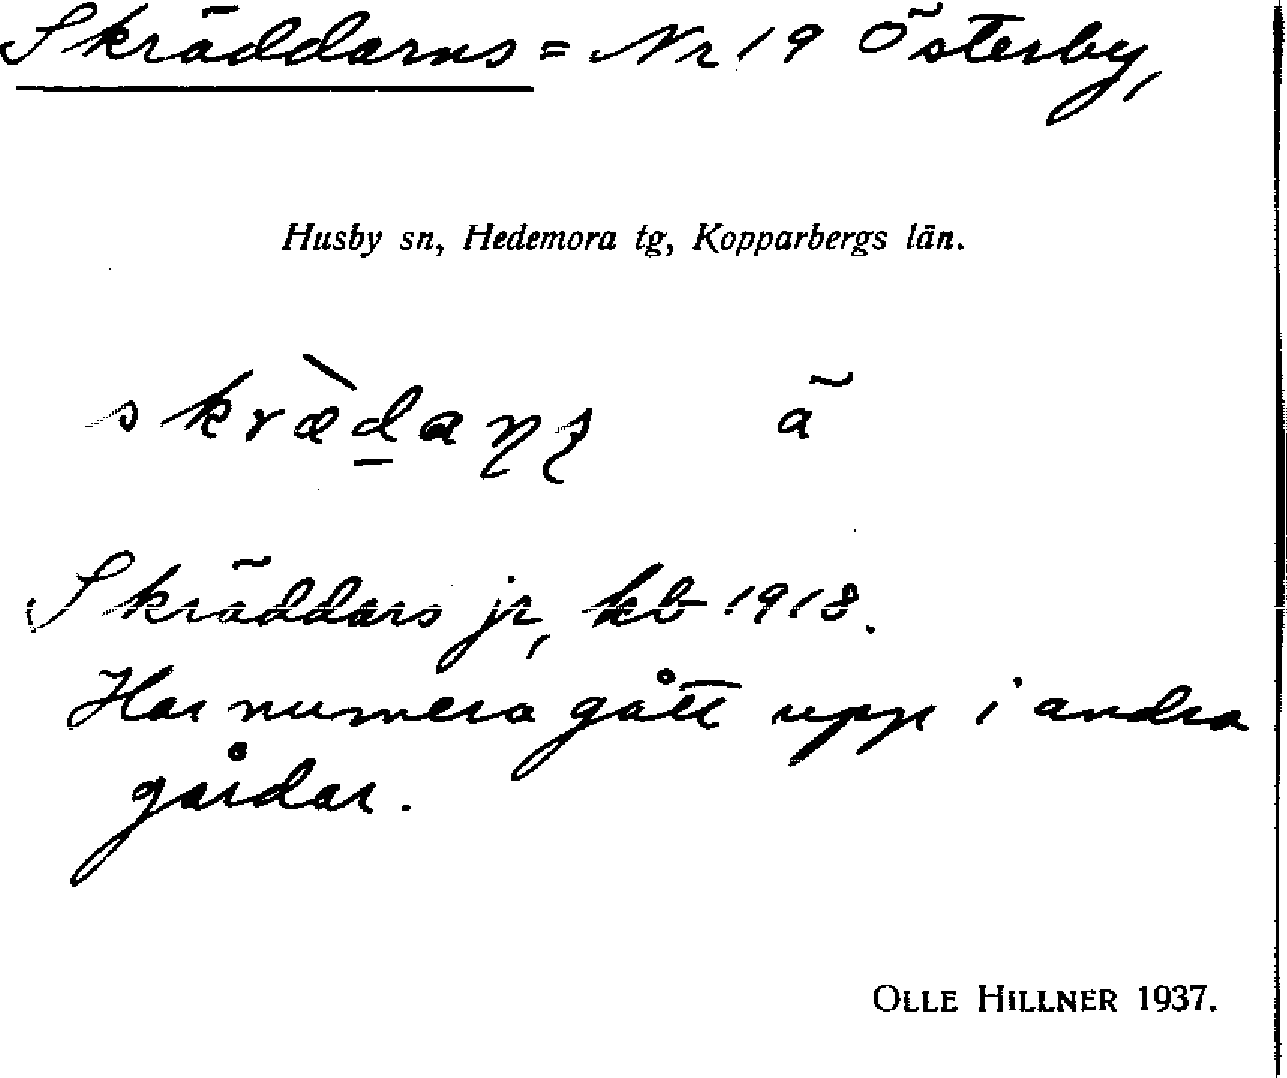 Skräddarns = Nr 19 Österby,
Husby sn, Hedemora tg, Kopparbergs län.
skræ̀d̲aɳʂ ä
Skräddars jr, kb 1918.
Har numera gått upp i andra
gårdar.
OLLE HILLNER 1937.